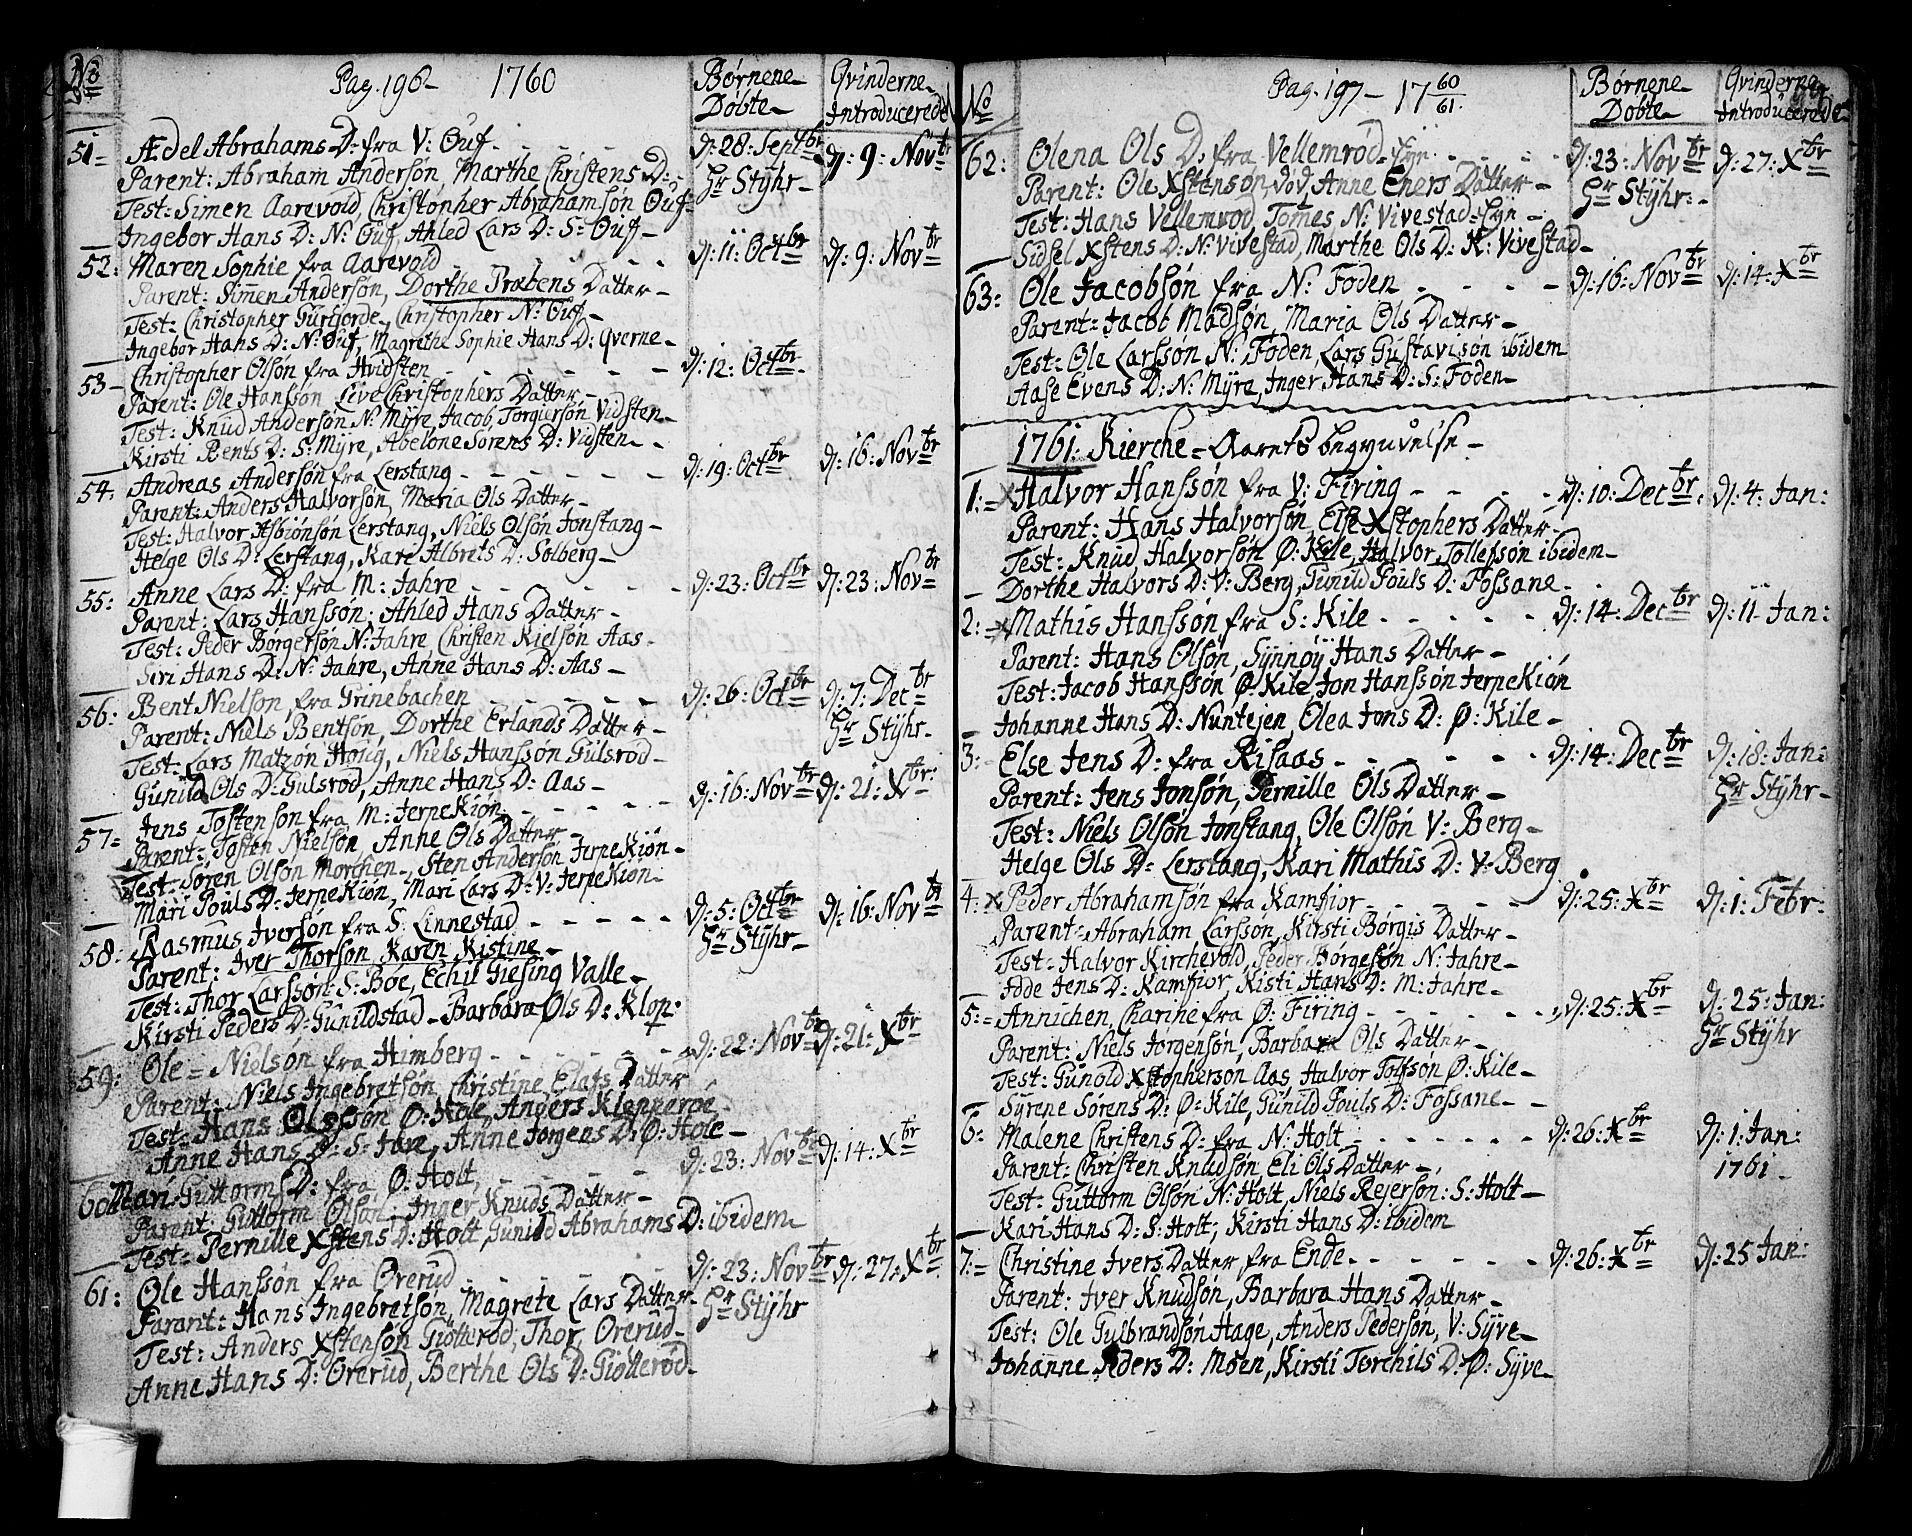 No
Pag. 196 - 1760
Børnene Døbte
Qvinderne Introducerede
51 = Ædel Abrahams D: fra V: Øuf - d: 28: Septbr Hr Styhr - d: 9: Novbr
Parent: Abraham Andersøn, Marthe Christens D:
Test: Simen Aarevold, Christopher Abrahamsøn Øuf
Ingebor Hans D: N: Øuf, Ahled Lars D: S: Øuf
52: Maren Sophie fra Aarevold - d: 11: Octbr d: 9: Novbr
Parent: Simen Andersøn, Dorthe Præbens Datter
Test: Christopher Gurijorde, Christopher N: Øuf
Ingebor Hans D: N: Øuf, Magrethe Sophie Hans D: Qverne
53 - Christopher Olsøn fra Hvidsten - d: 12: Octbr
Parent: Ole Hanssøn Live Christophers Datter
Test: Knud Andersøn N: Myre, Jacob Torgiersøn Vidsten
Kirsti Bents D: S: Myre, Abelone Sørens D: Vidsten
54: Andreas Andersøn fra Lerstang - d: 19: Octbr d: 16: Novbr
Parent: Anders Halvorsøn, Maria Ols Datter
Test: Halvor Asbiønsøn Lerstang, Niels Olsøn Jonstang
Helge Ols D: Lerstang, Kari Albrets D: Solberg
55: Anne Lars D: fra M: Jahre - d: 23: Octbr d: 23: Novbr
Parent: Lars Hanssøn, Ahled Hans Datter
Test: Peder Børgersøn N: Jahre Christen Kielsøn Aas
Siri Hans D: N: Jahre, Anne Hans D: Aas
56: Bent Nielsøn, fra Grinebachen - d: 26: Octbr d: 7: Decbr Hr Styhr
Parent: Niels Bentsøn, Dorthe Erlands Datter
Test: Lars Matzøn Høiig, Niels Hanssøn Gulsrod
Gunild Ols D: Gulsrod, Anne Hans D: Aas
57 - Jens Tostensøn fra M: Jerpekiøn - d: 16: Novbr d: 21: Xbr
Parent: Tosten Nielsøn Anne Ols Datter
Test: Søren Olsøn Morchen, Sten Andersøn Jerpekiøn
Mari Pouls D: Jerpekiøn, Mari Lars D: V: Jerpekiøn
58: Rasmus Iversøn fra S: Linnestad - d: 5: Octbr Hr Styhr d: 16: Novbr
Parent: Iver Thorsøn Karen Kistine
Test: Thor Larssøn S: Bøe, Echil Giesing Valle
Kirsti Peders D: Gunildstad - Barbara Ols D: Klop:
59: Ole = Nielsøn fra Himberg - d: 22: Novbr d: 21: Xbr
Parent: Niels Ingebretsøn, Christine Elafs Datter
Test: Hans Olssøn Ø: Hole, Anders Klepperøe
Anne Hans D: S: Jare, Anne Jorgens D: Ø: Hole
60 Mari Guttorms D: fra Ø: Holt - d: 23: Novbr d: 14: Xbr
Parent: Guttorm Olsøn, Inger Knuds Datter
Test: Pernille Xstens D: Holt, Gunild Abrahams D: ibidem
61: Ole Hanssøn fra Ørerud - d: 23: Novbr Hr Styhr d: 27: Xbr
Pararit: Hans Ingebretsøn, Magrete Lars Datter
Test: Anders Xstensøn Giøtterød, Thor, Ørerud
Anne Hans D: Ørerud, Berthe Ols D: Giøtterød
No
Pag. 197 - 17 60/61
Børnene Døbte
Qvinderne Introducerede
62: Olena Ols D: fra Vellemrød - d: 23: Novbr Hr Styhr: d: 27: Xbr
Parent: Ole Xstensøn, død, Anne Eners Datter
Test: Hans Vellemrod, Tomes N: Vivestad
Sidsel Xstens D: N: Vivestad, Marthe Ols D: N: Vivestad
63: Ole Jacobsøn fra N: Foden - d: 16: Novbr d: 14: Xbr
Parent: Jacob Madsøn, Maria Ols Datter
Test: Ole Larssøn N: Foden, Lars Gustavisøn ibidem
Aase Evens D: N: Myre, Inger Hans D: S: Foden
1761: Kierche = Aarets begyndelse
1: x Halvor Hanssøn fra V: Firing - d: 10: Decbr d: 4: Jan:
Parent: Hans Halvorsøn Else Xstophers Datter
Test: Knud Halvorsøn Ø: Kile, Halvor Tollefsøn ibidem
Dorthe Halvors D: V: Berg, Gunild Pouls D: Fossane
2: x Mathis Hanssøn fra S: Kile - d: 14: Decbr d: 11 Jan:
Parent: Hans Olsøn, Synnøy Hans Datter
Test: Jacob Hanssøn Ø: Kile, Jon Hanssøn Jerpekiøn
Johanne Hans D: Nuntejen, Olea Jons D: Ø: Kile
3: Else Jens D: fra Risaas - d: 14: Decbr d: 18: Jan: Hr Styhr
Parent: Jens Jonsøn, Pernille Ols Datter
Test: Niels Olsøn Jonstang, Ole Olsøn V: Berg
Helge Ols D: Lerstang, Kari Mathis D: V: Berg
4: x Peder Abrahamsøn fra Kamfior - d: 25: Xbr d: 1: Febr:
Parent: Abraham Larssøn, Kirsti Børgis Datter
Test: Halvor Kirchevold, Peder Børgesøn N: Jahre
Jode Jens D: Kamfior, Kisti Hans D: M: Jahre
5: = Annichen, Charine fra Ø: Firing - d: 25: Xbr d: 25: Jan: Hr Styhr
Parent: Niels Jørgensøn, Barbara Ols Datter
Test: Gunold Xstophersøn Aas, Halvor Tolfsøn Ø: Kile
Syrene Sørens D: Ø: Kile, Gunild Pouls D: Fossane
6: Malene Christens D: fra N: Holt - d: 26: Xbr d: 1: Jan: 1761
Parent: Christen Knudsøn, Eli Ols Datter
Test: Guttorm Olsøn N: Holt, Niels Rejersøn: S: Holt
Kari Hans D: S: Holt, Kirsti Hans D: ibidem
7: = Christine Ivers Datter fra Ende - d: 26: Xbr d: 25 Jan:
Parent: Iver Knudsøn, Barbara Hans Datter
Test: Ole Gulbrandsøn Hage, Anders Pedersøn, V: Syve
Johanne Peders D: Moen, Kirsti Torchils D: Ø: Syve